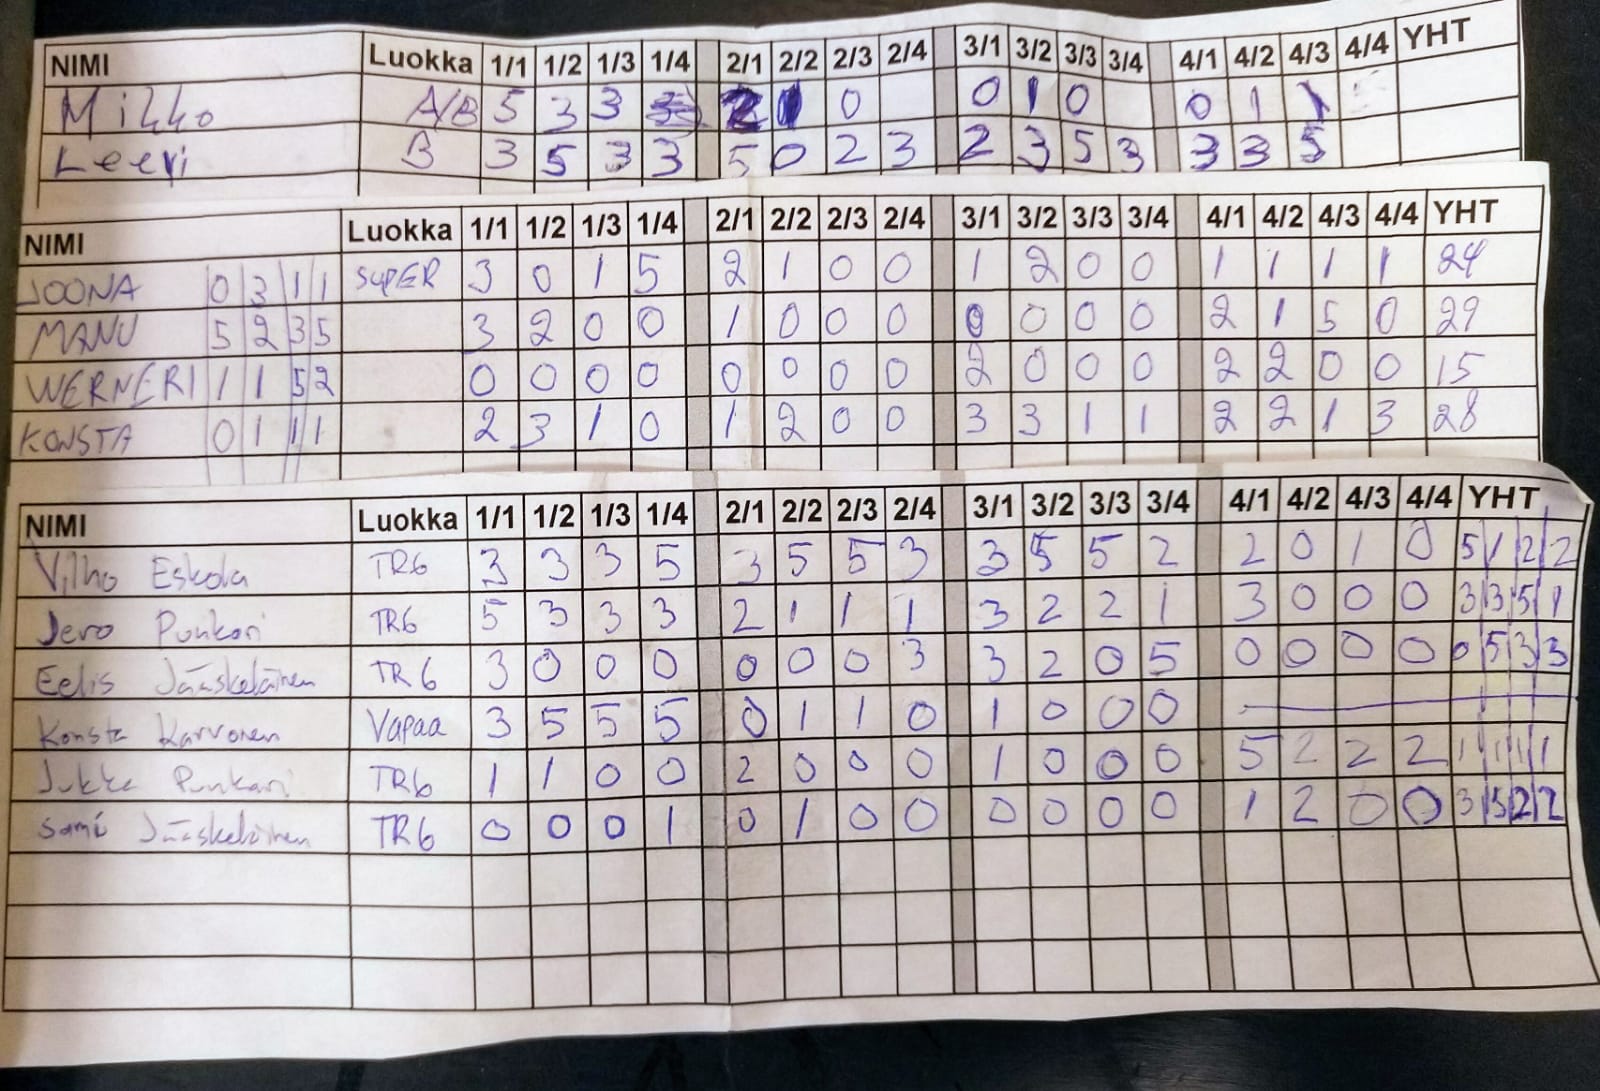 NIMI Luokka 1/1 1/2 1/3 1/4 2/1 2/2 2/3 2/4 3/1 3/2 3/3 3/4 4/1 4/2 4/3 4/4 YHT
Mikko A/B 5 3 3 2 1 0 0 1 0 0 1 1
Leevi B 3 5 3 3 5 0 2 3 2 3 5 3 3 3 5
NIMI Luokka 1/1 1/2 1/3 1/4 2/1 2/2 2/3 2/4 3/1 3/2 3/3 3/4 4/1 4/2 4/3 4/4 YHT
JOONA 0 3 1 1 SUPER 3 0 1 5 2 1 0 0 1 2 0 0 1 1 1 1 24
MANU 5 2 3 5 3 2 0 0 1 0 0 0 0 0 0 0 2 1 5 0 29
WERNERI 1 1 5 2 0 0 0 0 0 0 0 0 2 0 0 0 2 2 0 0 15
KONSTA 0 1 1 1 2 3 1 0 1 2 0 0 3 3 1 1 2 2 1 3 28
NIMI Luokka 1/1 1/2 1/3 1/4 2/1 2/2 2/3 2/4 3/1 3/2 3/3 3/4 4/1 4/2 4/3 4/4 YHT
Vilho Eskola TR6 3 3 3 5 3 5 5 3 3 5 5 2 2 0 1 0 5 1 2 2
Jero Punkari TR6 5 3 3 3 2 1 1 1 3 2 2 1 3 0 0 0 3 3 5 1
Eelis Jääskeläinen TR6 3 0 0 0 0 0 0 3 3 2 0 5 0 0 0 0 0 5 3 3
Konsta Karvonen Vapaa 3 5 5 5 0 1 1 0 1 0 0 0
Jukka Punkari TR6 1 1 0 0 2 0 0 0 1 0 0 0 5 2 2 2 1 1 1 1
Sami Jääskeläinen TR6 0 0 0 1 0 1 0 0 0 0 0 0 1 2 0 0 3 5 2 2